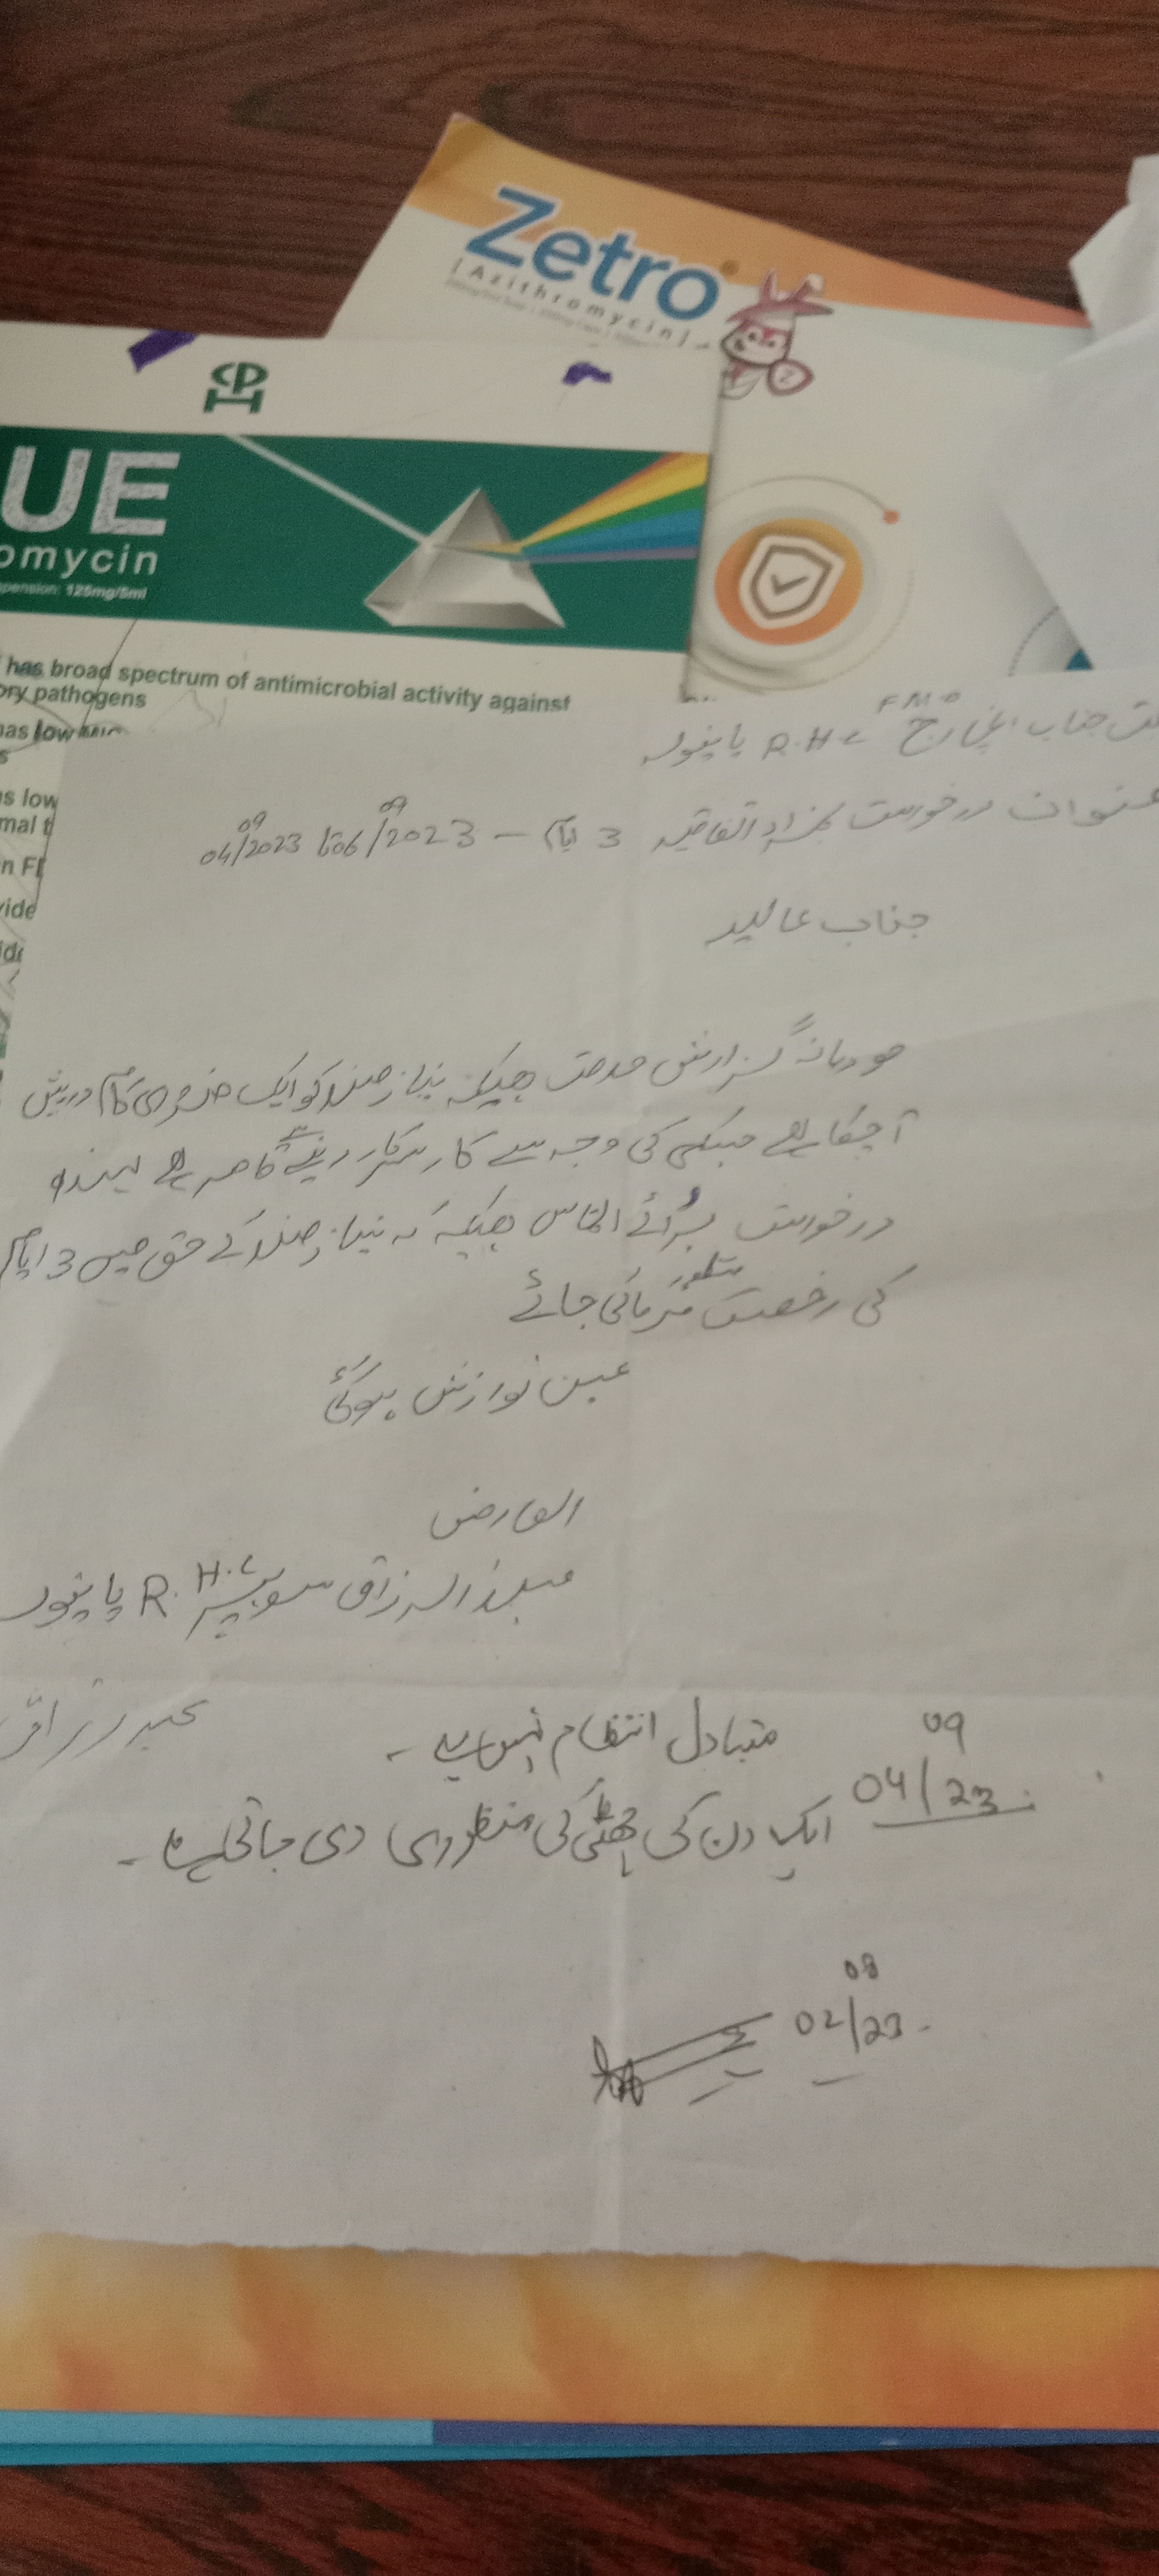 Zetro
[Azithromycin]
UE
omycin
pension: 125mg/5ml
has broad spectrum of antimicrobial activity against
ory pathogens
has low MIC
s low
mal t
n FI
vide
جناب انچارج F.M.O R.H.C پاپنور
عنوان درخواست بمراد اتفاقیہ 3 ایام – 04/09/2023 تا 06/09/2023
جناب عالیہ
مودبانہ گزارش خدمت ہیکہ نیازمند کو ایک ضروری کام درپیش
آ چکا ہے جسکی کی وجہ سے کار سرکار دینے سے قاصر ہے لہذہ
درخواست برائے التماس ہیکہ کہ نیازمند کے حق میں 3 ایام
کی رخصت منظور فرمائی جائے
عین نوازش ہوگئی
العارض
عبدالرزاق سویپر R.H.C پاپنور
عبدرزاق
متبادل انتظام نہیں ہے۔
04/09/23 ایک دن کی چھٹی کی منظوری دی جاتی ہے۔
02/08/23